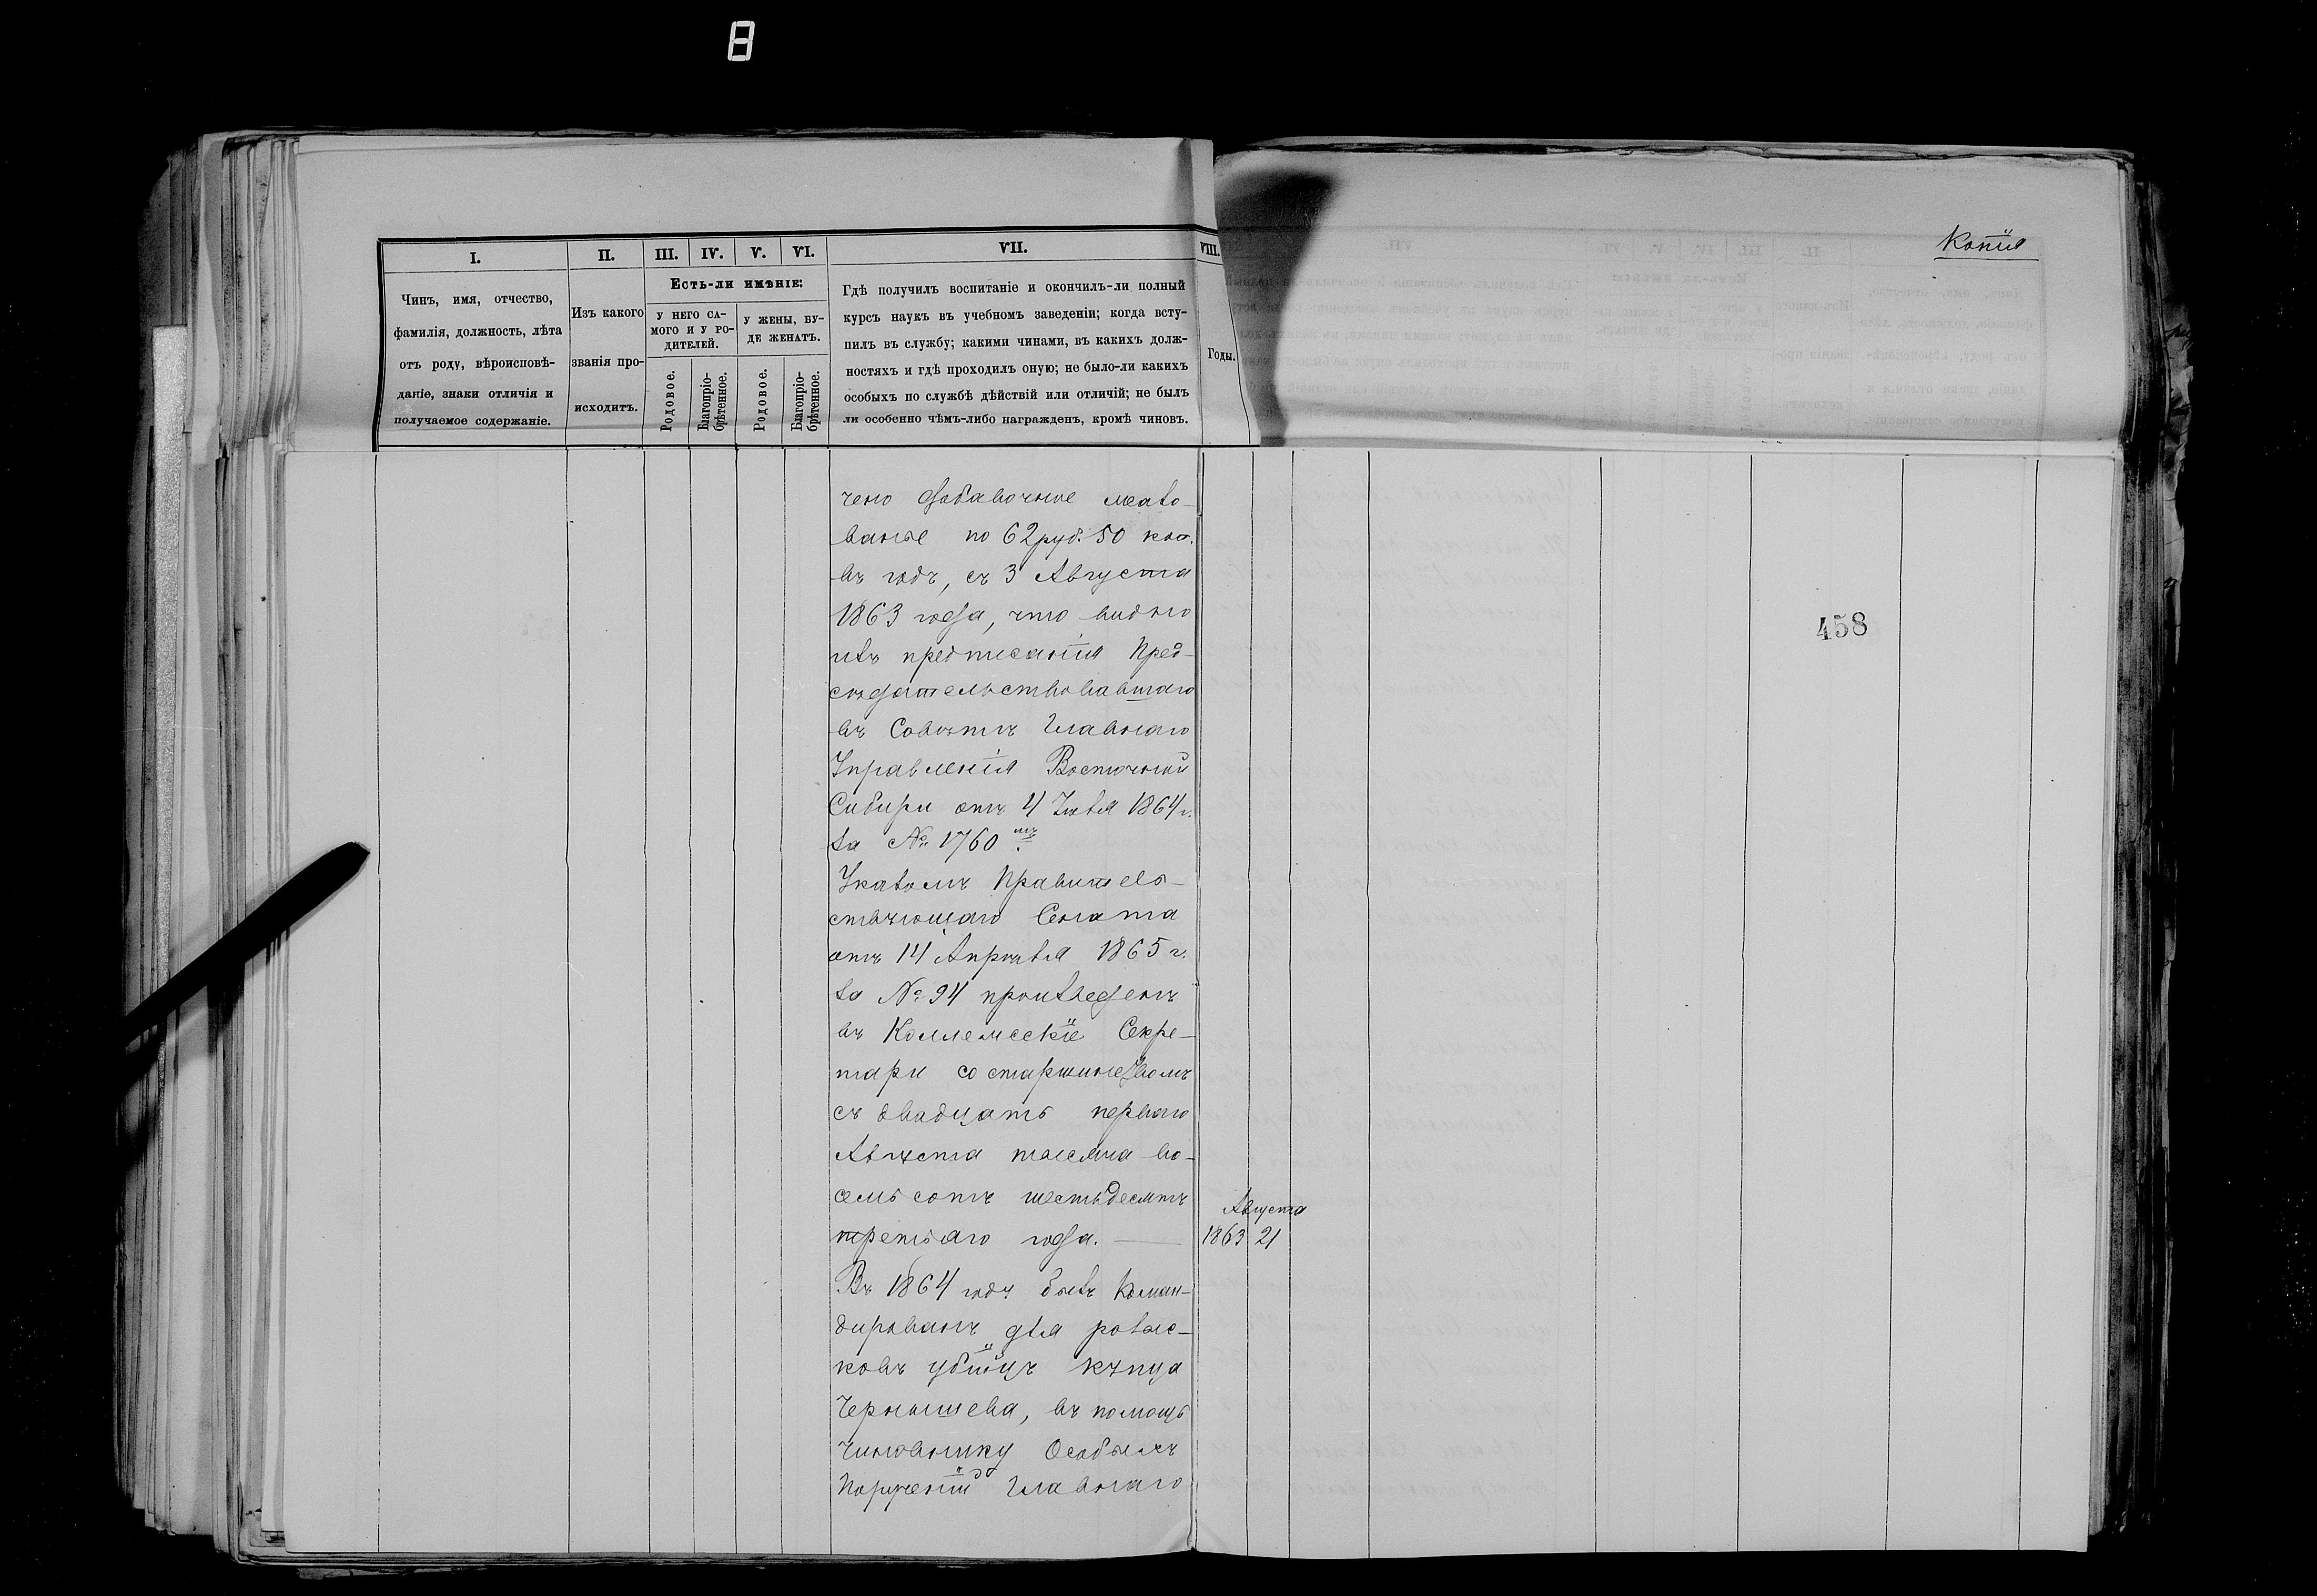 8
Копія
I.
II.
III.
IV.
V.
VI.
VII.
VIII.
Чинъ, имя, отчество,
фамилія, должность, лѣта
отъ роду, вѣроисповѣ-
даніе, знаки отличія и
получаемое содержаніе.
Изъ какого
званія про-
исходитъ.
Есть-ли имѣніе:
У НЕГО СА-
МОГО И У РО-
ДИТЕЛЕЙ.
У ЖЕНЫ, БУ-
ДЕ ЖЕНАТЪ.
Родовое.
Благопріо-
брѣтенное.
Родовое.
Благопріо-
брѣтенное.
Гдѣ получилъ воспитаніе и окончилъ-ли полный
курсъ наукъ въ учебномъ заведеніи; когда всту-
пилъ въ службу; какими чинами, въ какихъ долж-
ностяхъ и гдѣ проходилъ оную; не было-ли какихъ
особыхъ по службѣ дѣйствій или отличій; не былъ
ли особенно чѣмъ-либо награжденъ, кромѣ чиновъ.
Годы.
чено добавочное жало-
ванье по 62 руб. 50 коп.
въ годъ, съ 3 Августа
1863 года, что видно
изъ предписанія Пред-
сѣдательствовавшаго
въ Совѣтѣ Главнаго
Управленія Восточной
Сибири отъ 4 Іюля 1864 г.
за № 1760мъ.
Указомъ Правитель-
ствующаго Сената
отъ 14 Апрѣля 1865 г.
за № 94 произведенъ
въ Коллежскіе Секре-
тари со старшинствомъ
съ двадцать перваго
Августа тысяча во-
семьсотъ шестьдесятъ
третьяго года.
Августа
1863 21
Въ 1864 году былъ коман-
дированъ для розыс-
ковъ убійцъ купца
Чернышева, въ помощь
чиновнику Особыхъ
Порученій Главнаго
458